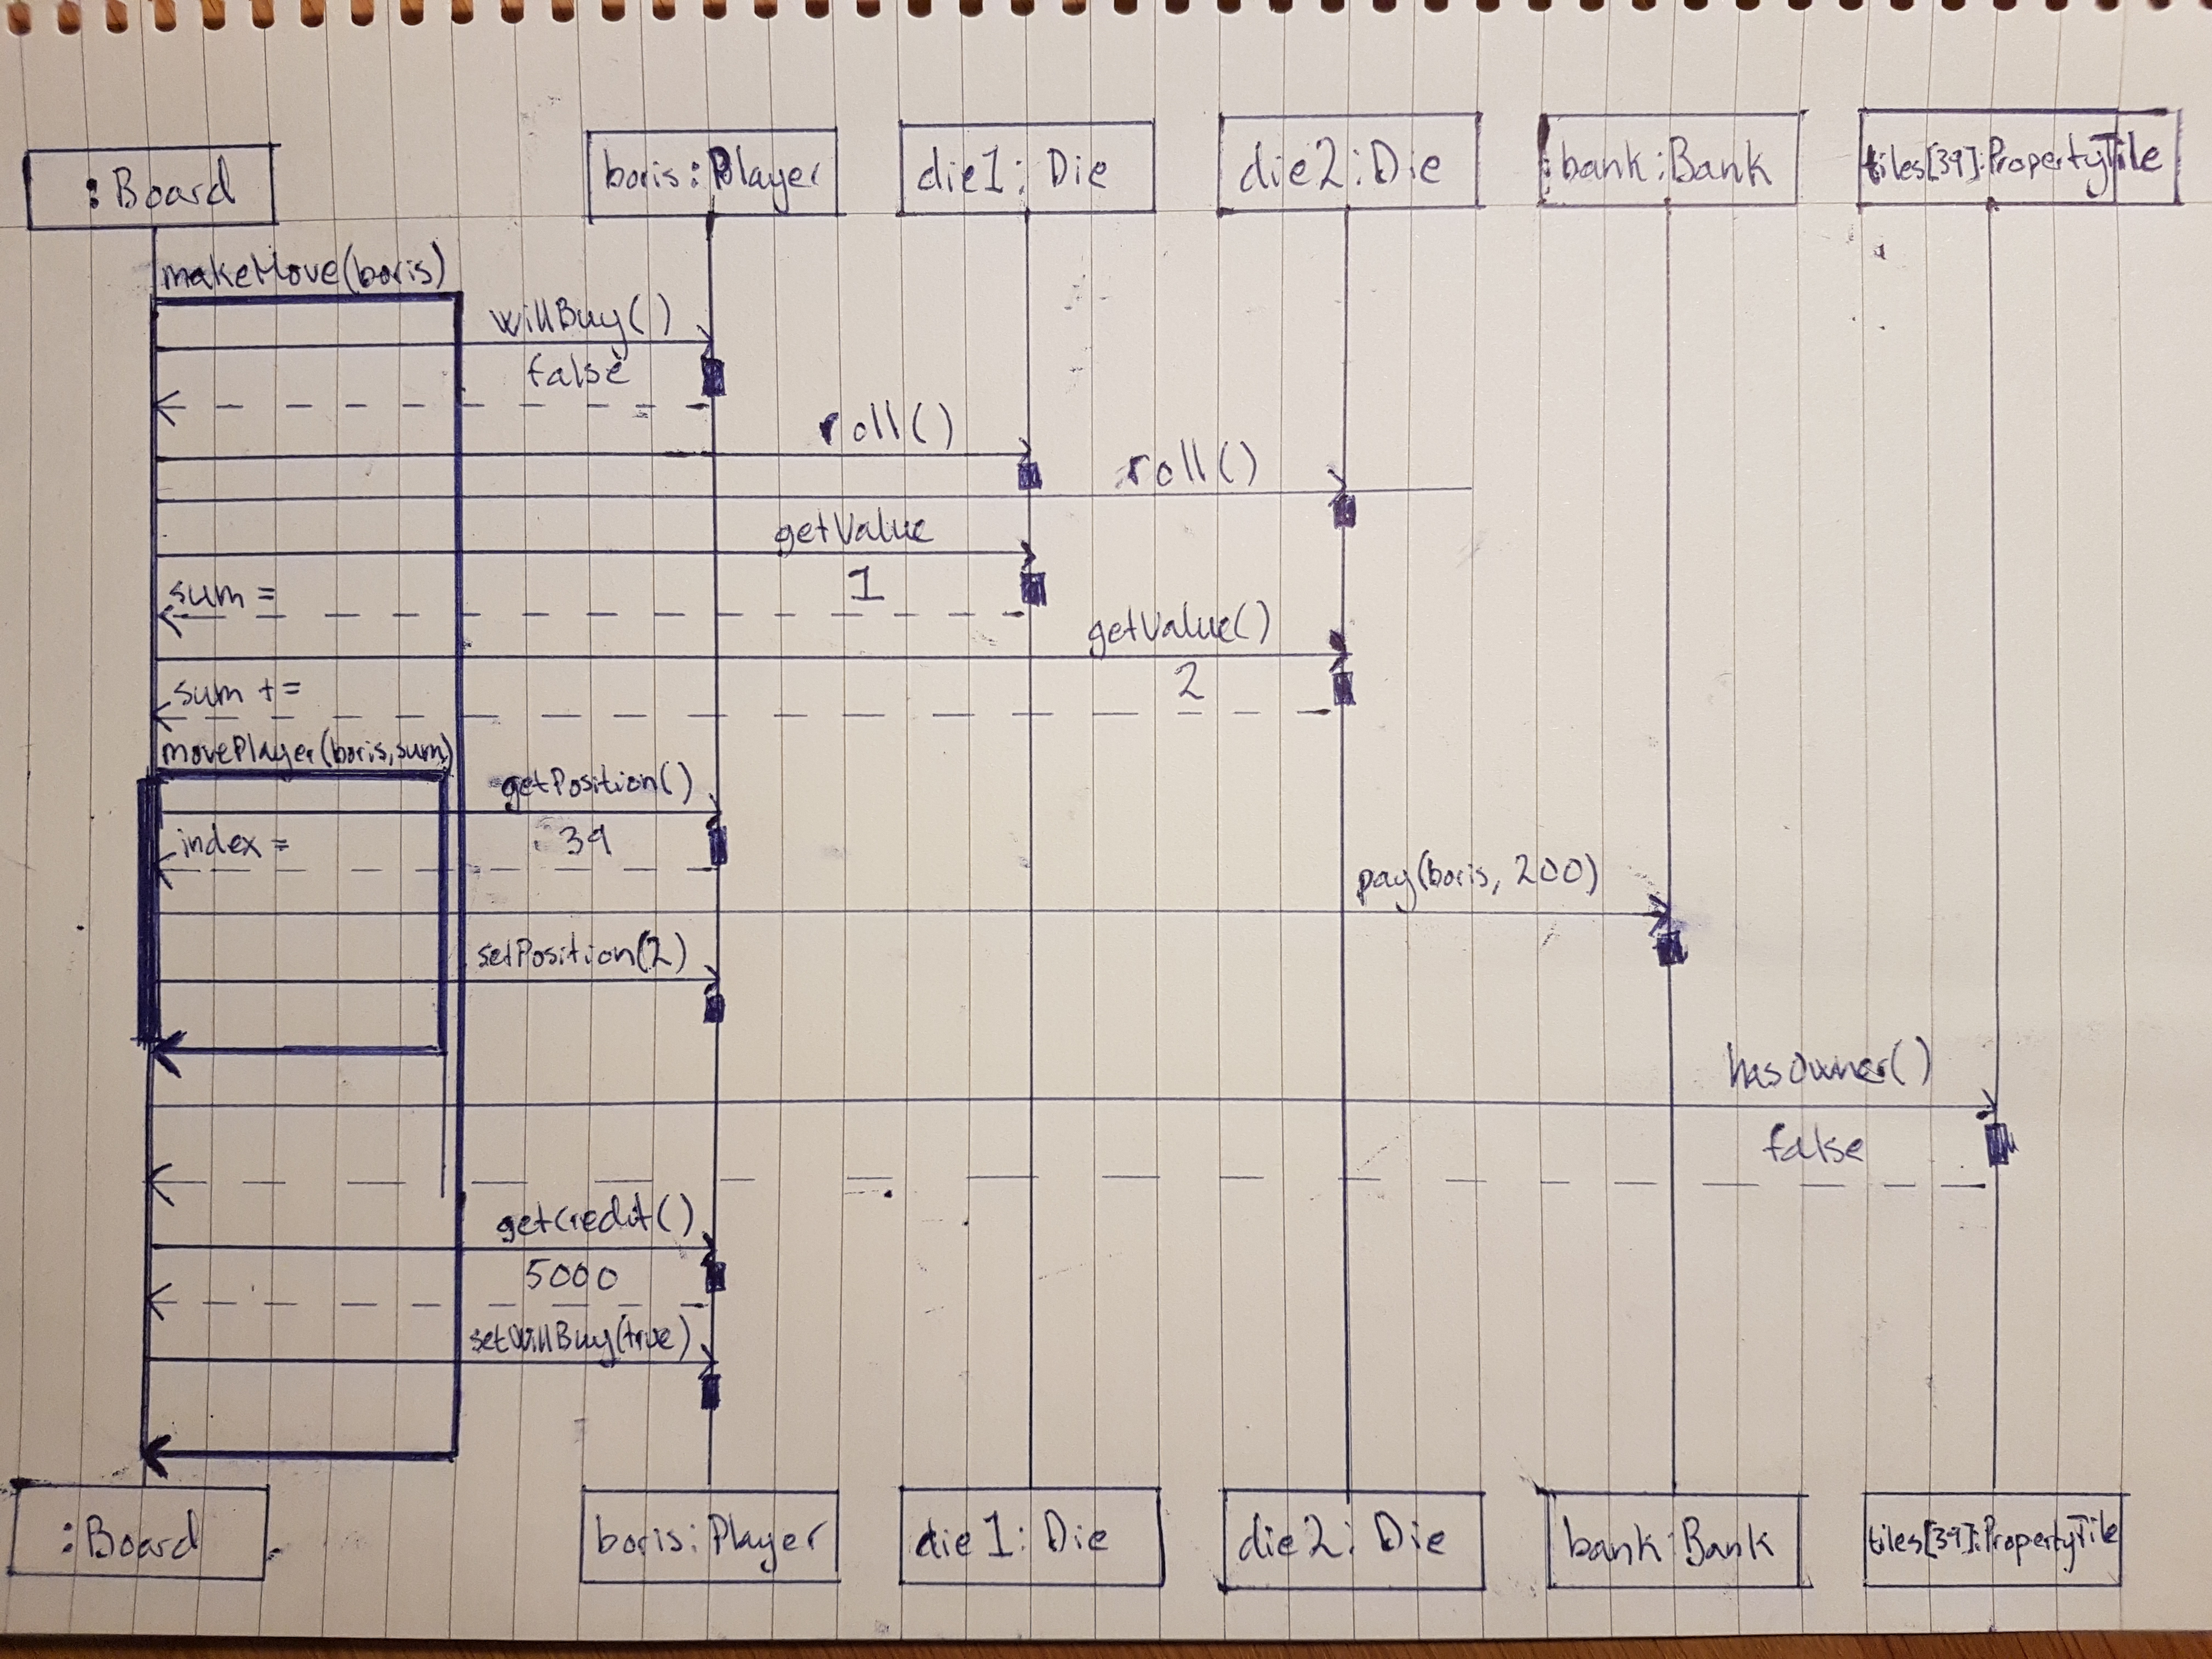 :Board
boris:Player
die1:Die
die2:Die
:bank:Bank
tiles[39]:PropertyTile
makeMove(boris)
willBuy()
false
roll()
roll()
getValue
sum =
1
getValue()
sum +=
2
movePlayer(boris,sum)
getPosition()
index =
39
pay(boris, 200)
setPosition(2)
hasOwner()
false
getCredit()
5000
setWillBuy(true)
:Board
boris:Player
die1:Die
die2:Die
bank:Bank
tiles[39]:PropertyTile